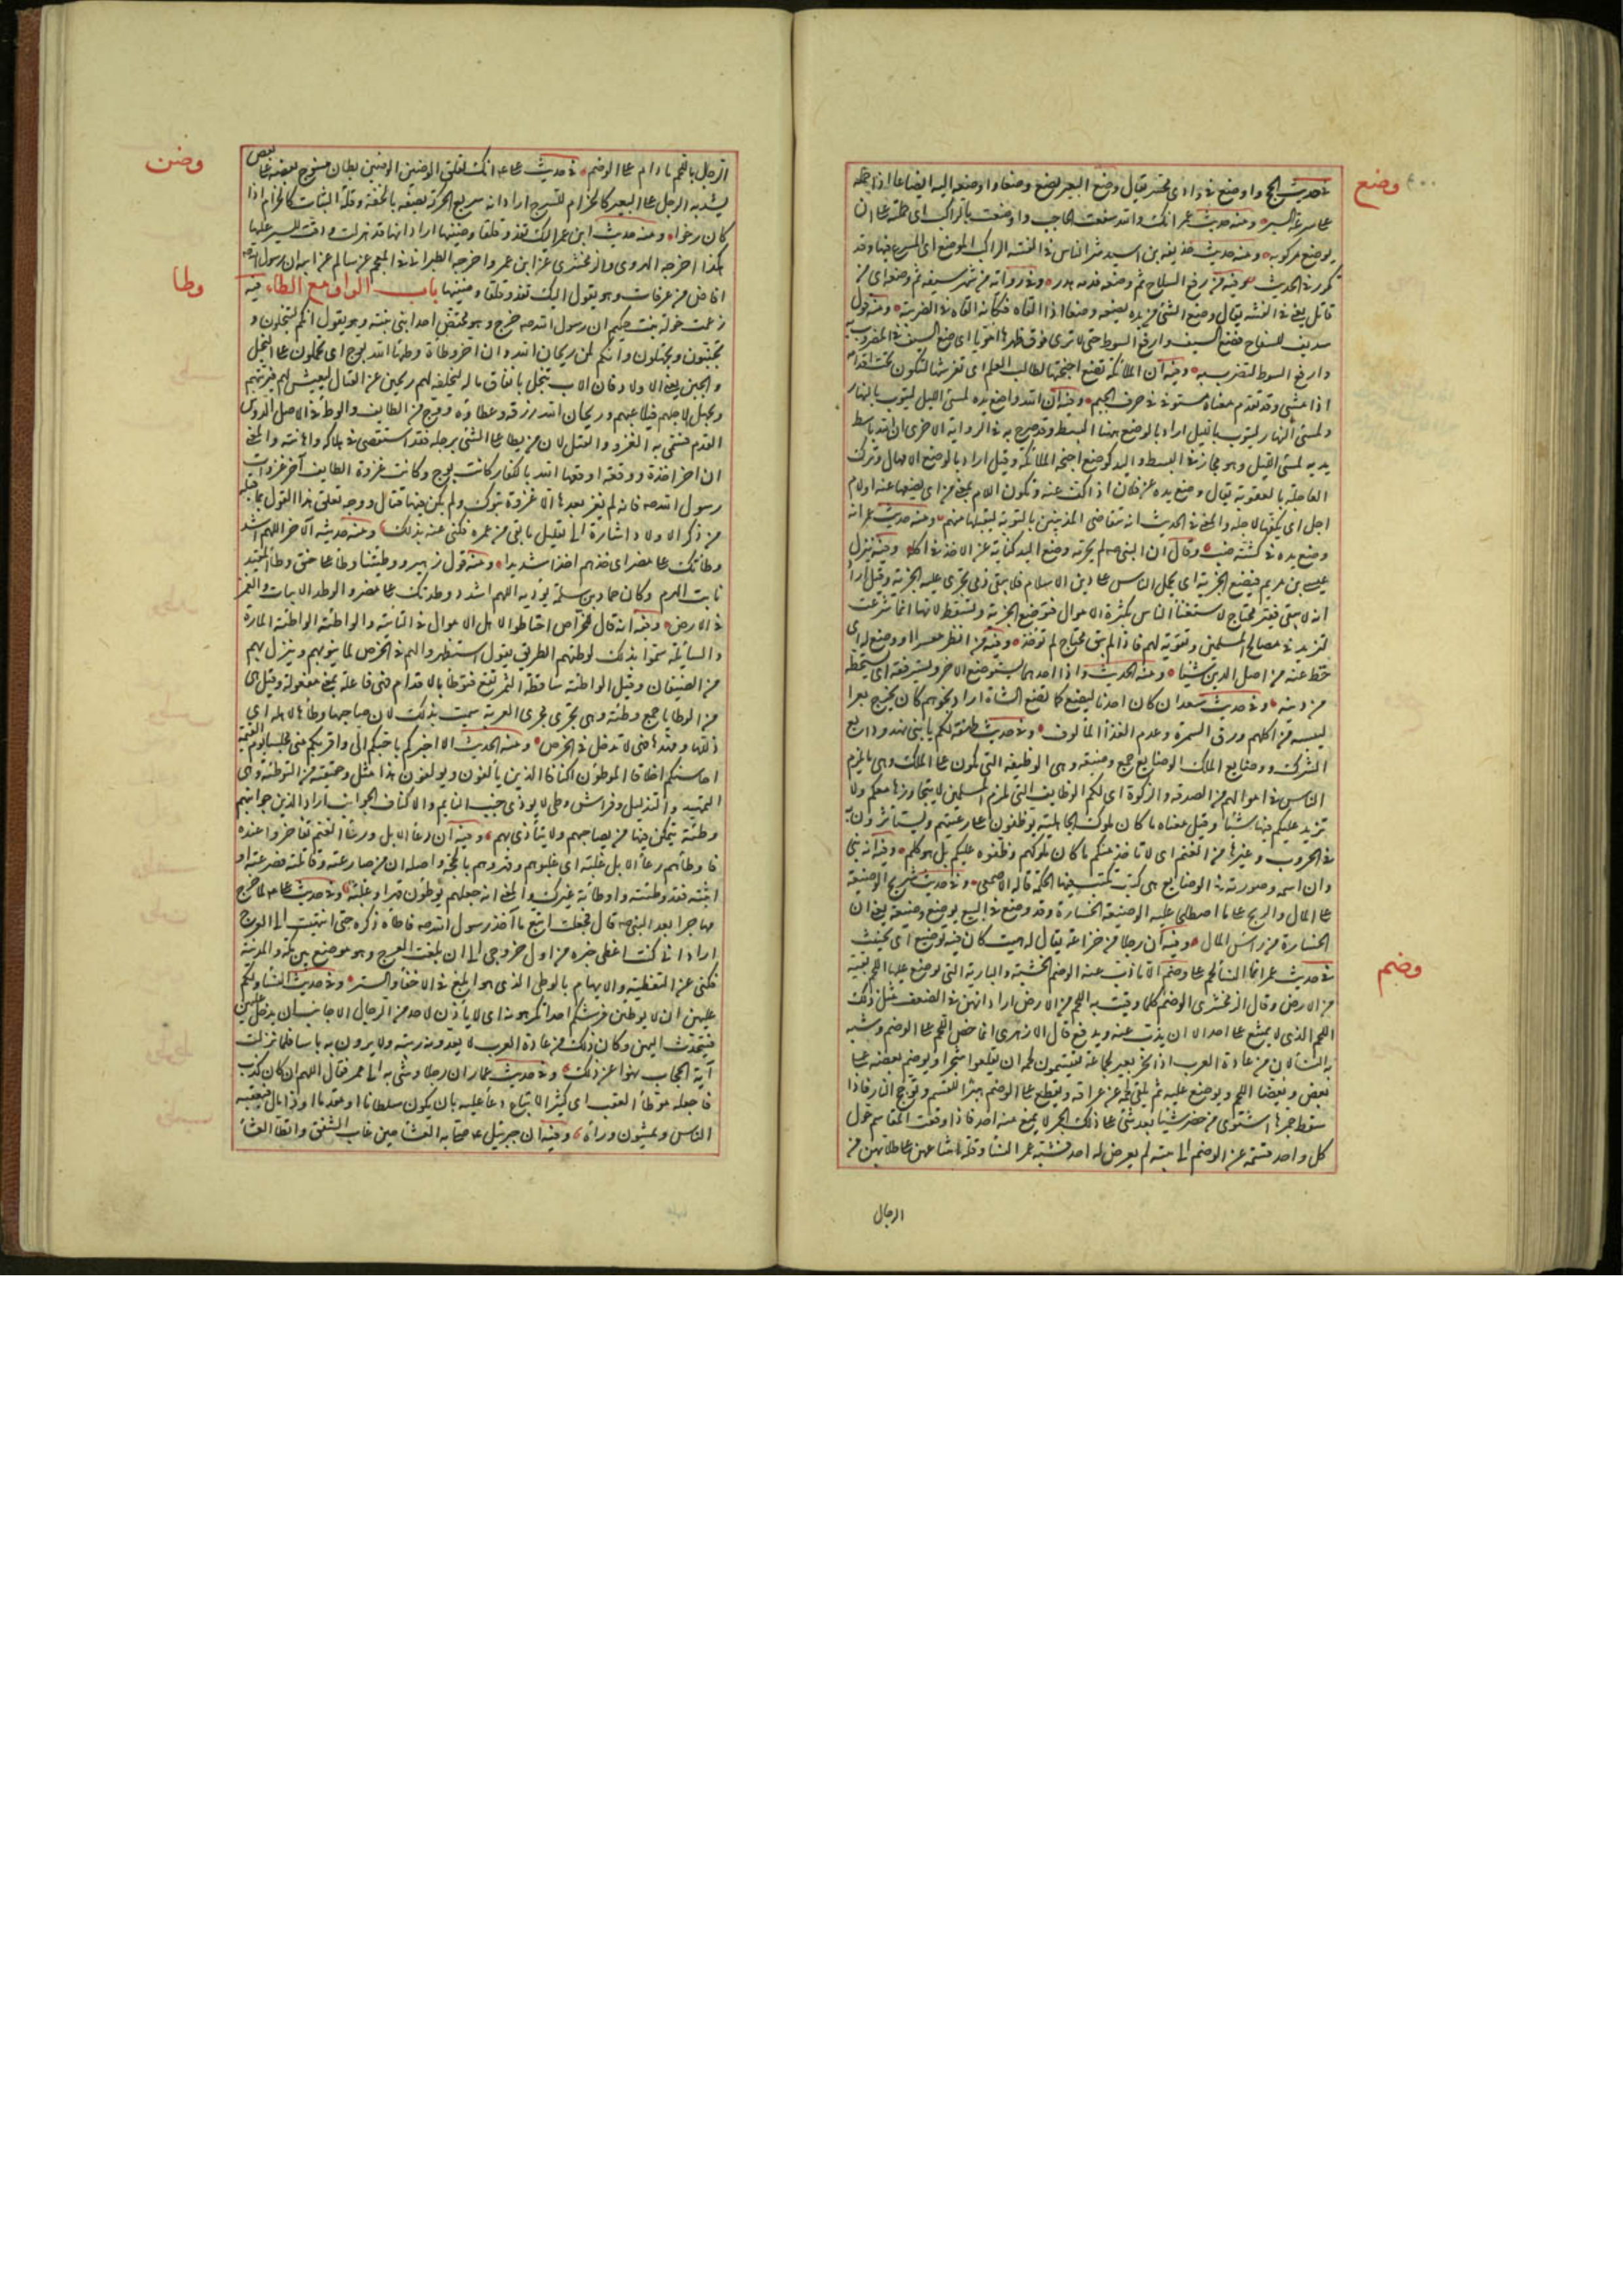 وضع
في حديث الحج واوضع في وادى محسر يقال وضع البعير يضع وضعا واوضعه راكبه ايضاعا اذا حمله
على سرعة السير ومنه حديث عمر انك والله سقعت الحاجب واوضعت بالراكب اى حملته على ان
يوضع مركوبه ومنه حديث حذيفة بن اسيد شر الناس في الفتنة الراكب الموضع اى المسرع فيها وقد
تكرر في الحديث وفيه من رفع السلاح ثم وضعه فدمه هدر وفي رواية من شهر سيفه ثم وضعه اى من
قاتل به يعنى في الفتنة يقال وضع الشئ من يده يضعه وضعا اذا القاه فكانه القاه في الضريبة ومنه قول
سديف للسفاح فضع السيف وارفع السوط حتى لا ترى فوق ظهرها امويا اى ضع السيف في المضروب به
وارفع السوط لتضرب به وفيه ان الملائكة تضع اجنحتها لطالب العلم اى تفرشها لتكون تحت اقدامه
اذا مشى وقد تقدم معناه مستوفى في حرف الجيم وفيه ان الله واضع يده لمسئ الليل ليتوب بالنهار
ولمسئ النهار ليتوب بالليل اراد بالوضع ههنا البسط وقد صرح به في الرواية الاخرى ان الله باسط
يديه لمسئ الليل وهو مجاز في البسط واليد كوضع اجنحة الملائكة وقيل اراد بالوضع الامهال وترك
المعاجلة بالعقوبة يقال وضع يده عن فلان اذا كف عنه وتكون اللام بمعنى عن اى يضعها عنه او لام
اجل اى يكفها لاجله والمعنى في الحديث انه يتقاضى المذنبين بالتوبة ليقبلها منهم ومنه حديث عمر انه
وضع يده في كشية ضب وقال ان النبى صلم لم يحرمه وضع اليد كناية عن الاخذ في اكله وفيه ينزل
عيسى بن مريم فيضع الجزية اى يحمل الناس على دين الاسلام فلا يبقى ذمى تجرى عليه الجزية وقيل اراد
انه لا يبقى فقير محتاج لاستغناء الناس بكثرة الاموال فتوضع الجزية وتسقط لانها انما شرعت
لتزيد في مصالح المسلمين وتقوية لهم فاذا لم يبق محتاج لم تؤخذ وفيه من انظر معسرا او وضع له اى
حط عنه من اصل الدين شيئا ومنه الحديث واذا احدهما يستوضع الاخر ويسترفقه اى يستحطه
من دينه وفي حديث سعد ان كان احدنا ليضع كما تضع الشاة اراد نجوهم كان يخرج بعرا
ليبسه من اكلهم ورق السمر وعدم الغذاء المألوف وفي حديث طهفة لكم يا بنى نهد ودائع
الشرك ووضايع الملك الوضايع جمع وضيعة وهى الوظيفة التى تكون على الملك وهى ما يلزم
الناس في اموالهم من الصدقة والزكوة اى لكم الوظايف التى تلزم المسلمين لا نتجاوزها معكم ولا
نزيد عليكم فيها شيئا وقيل معناه ما كان ملوك الجاهلية يوظفون على رعيتهم ويستأثرون به
في الحروب وغيرها من المغنم اى لا نأخذ منكم ما كان ملوككم وظفوه عليكم بل هو لكم وفيه انه نبى
وان اسمه وصورته في الوضايع هى كتب تكتب فيها الحكمة قاله الاصمعى وفي حديث شريح الوضيعة
على المال والربح على ما اصطلحا عليه الوضيعة الخسارة وقد وضع في البيع يوضع وضيعة يعنى ان
الخسارة من رأس المال وفيه ان رجلا من خزاعة يقال له هيت كان فيه توضيع اى تخنيث
وضم
في حديث عمر انما النساء لحم على وضم الا ما ذب عنه الوضم الخشبة والبارية التى يوضع عليها اللحم تقيه
من الارض وقال الزمخشرى الوضم كلما وقيت به اللحم من الارض اراد انهن في الضعف مثل ذلك
اللحم الذى لا يمتنع على احد الا ان يذب عنه ويدفع قال الازهرى انما خص اللحم على الوضم وشبه
به النساء لان من عادة العرب اذا نحر بعير لجماعة يقتسمون لحمه ان يقلعوا شجرا ويوضم بعضه على
بعض ويعضى اللحم ويوضع عليه ثم يلقى لحمه عن عراقه ويقطع على الوضم هبرا للقسم وتوجج النار فاذا
سقط جمرها اشتوى من حضر شيئا بعد شئ على ذلك الجمر لا يمنع منه احد فاذا وقعت المقاسم حول
كل واحد قسمه عن الوضم الى بيته لم يعرض له احد فشبه عمر النساء وقلة امتناعهن على طلابهن من
الرجال
وضن
الرجال باللحم ما دام على الوضم في حديث على انك لقلق الوضين الوضين بطان منسوج بعضه على بعض
يشد به الرحل على البعير كالحزام للسرج اراد انه سريع الحركة يصفه بالخفة وقلة الثبات كالحزام اذا
كان رخوا ومنه حديث ابن عمر اليك تعدو قلقا وضينها اراد انها قد هزلت ودقت للسير عليها
هكذا اخرجه الهروى والزمخشرى عن ابن عمر واخرجه الطبرانى في المعجم عن سالم عن ابيه ان رسول الله صلم
افاض من عرفات وهو يقول اليك تعدو قلقا وضينها باب الواو مع الطاء فيه
وطا
زعمت خولة بنت حكيم ان رسول الله صلم خرج وهو محتضن احد ابنى ابنته وهو يقول انكم لتبخلون و
تجبنون وتجهلون وانكم لمن ريحان الله وان اخر وطأة وطئها الله بوج اى تحملون على البخل
والجبن والجهل يعنى الاولاد فان الاب يبخل بانفاق ماله ليخلفه لهم ويجبن عن القتال ليعيش لهم فيربيهم
ويجهل لاجلهم فيلاعبهم وريحان الله رزقه وعطاؤه ووج من الطايف والوطء في الاصل الدوس
بالقدم فسمى به الغزو والقتل لان من يطأ على الشئ برجله فقد استقصى في هلاكه واهانته والمعنى
ان اخر اخذة ووقعة اوقعها الله بالكفار كانت بوج وكانت غزوة الطايف آخر غزوات
رسول الله صلم فانه لم يغز بعدها الا غزوة تبوك ولم يكن فيها قتال ووجه تعلق هذا القول بما قبله
من ذكر الاولاد اشارة الى تقليل ما بقى من عمره فكنى عنه بذلك ومنه حديثه الاخر اللهم اشدد
وطأتك على مضر اى خذهم اخذا شديدا ومنه قول زهير ووطئتنا وطأ على حنق وطأ المقيد
نابت الهرم وكان حماد بن سلمة يرويه اللهم اشدد وطدتك على مضر والوطد الاثبات والغمز
في الارض وفيه انه قال للخراص احتاطوا لاهل الاموال في النائبة والواطئة الواطئة المارة
والسابلة سموا بذلك لوطئهم الطريق يقول استظهروا لهم في الخرص لما ينوبهم وينزل بهم
من الضيفان وقيل الواطئة سقاطة التمر تقع فتوطأ بالاقدام فهى فاعلة بمعنى مفعولة وقيل هى
من الوطايا جمع وطيئة وهى تجرى مجرى العرية سميت بذلك لان صاحبها وطأها لاهله اى
ذللها ومهدها فهى لا تدخل في الخرص ومنه الحديث الا اخبركم باحبكم الى واقربكم منى مجلسا يوم القيمة
احاسنكم اخلاقا الموطؤن اكنافا الذين يألفون ويؤلفون هذا مثل وحقيقته من التوطئة وهى
التمهيد والتذليل وفراش وطئ لا يوذى جنب النايم والاكناف الجوانب اراد الذين جوانبهم
وطئة يتمكن فيها من يصاحبهم ولا يتأذى بهم وفيه ان رعاء الابل ورعاء الغنم تفاخروا عنده
فاوطأهم رعاء الابل غلبة اى غلبوهم وقهروهم بالحجة واصله ان من صارعته وقاتلته فصرعته او
اثبته فقد وطئته واوطأته غيرك والمعنى انه جعلهم يوطؤن قهرا وغلبة وفي حديث على لما خرج
مهاجرا بعد النبى صلم قال فجعلت اتبع مآخذ رسول الله صلم فاطأ ذكره حتى انتهيت الى العرج
اراد انى كنت اغطى خبره من اول خروجى الى ان بلغت العرج وهو موضع بين مكة والمدينة
فكنى عن التغطية والايهام بالوطئ الذى هو ابلغ في الاخفاء والستر وفي حديث النساء ولكم
عليهن ان لا يوطئن فرشكم احدا تكرهونه اى لا يأذن لاحد من الرجال الاجانب ان يدخل عليهن
فيتحدث اليهن وكان ذلك من عادة العرب لا يعدونه ريبة ولا يرون به باسا فلما نزلت
آية الحجاب نهوا عن ذلك وفي حديث عمار ان رجلا وشى به الى عمر فقال اللهم ان كان كذب
فاجعله موطأ العقب اى كثير الاتباع دعاء عليه بان يكون سلطانا او مقدما او ذا مال فيتبعه
الناس ويمشون وراءه وفيه ان جبرئيل صلى به العشاء حين غاب الشفق واتطا العشاء